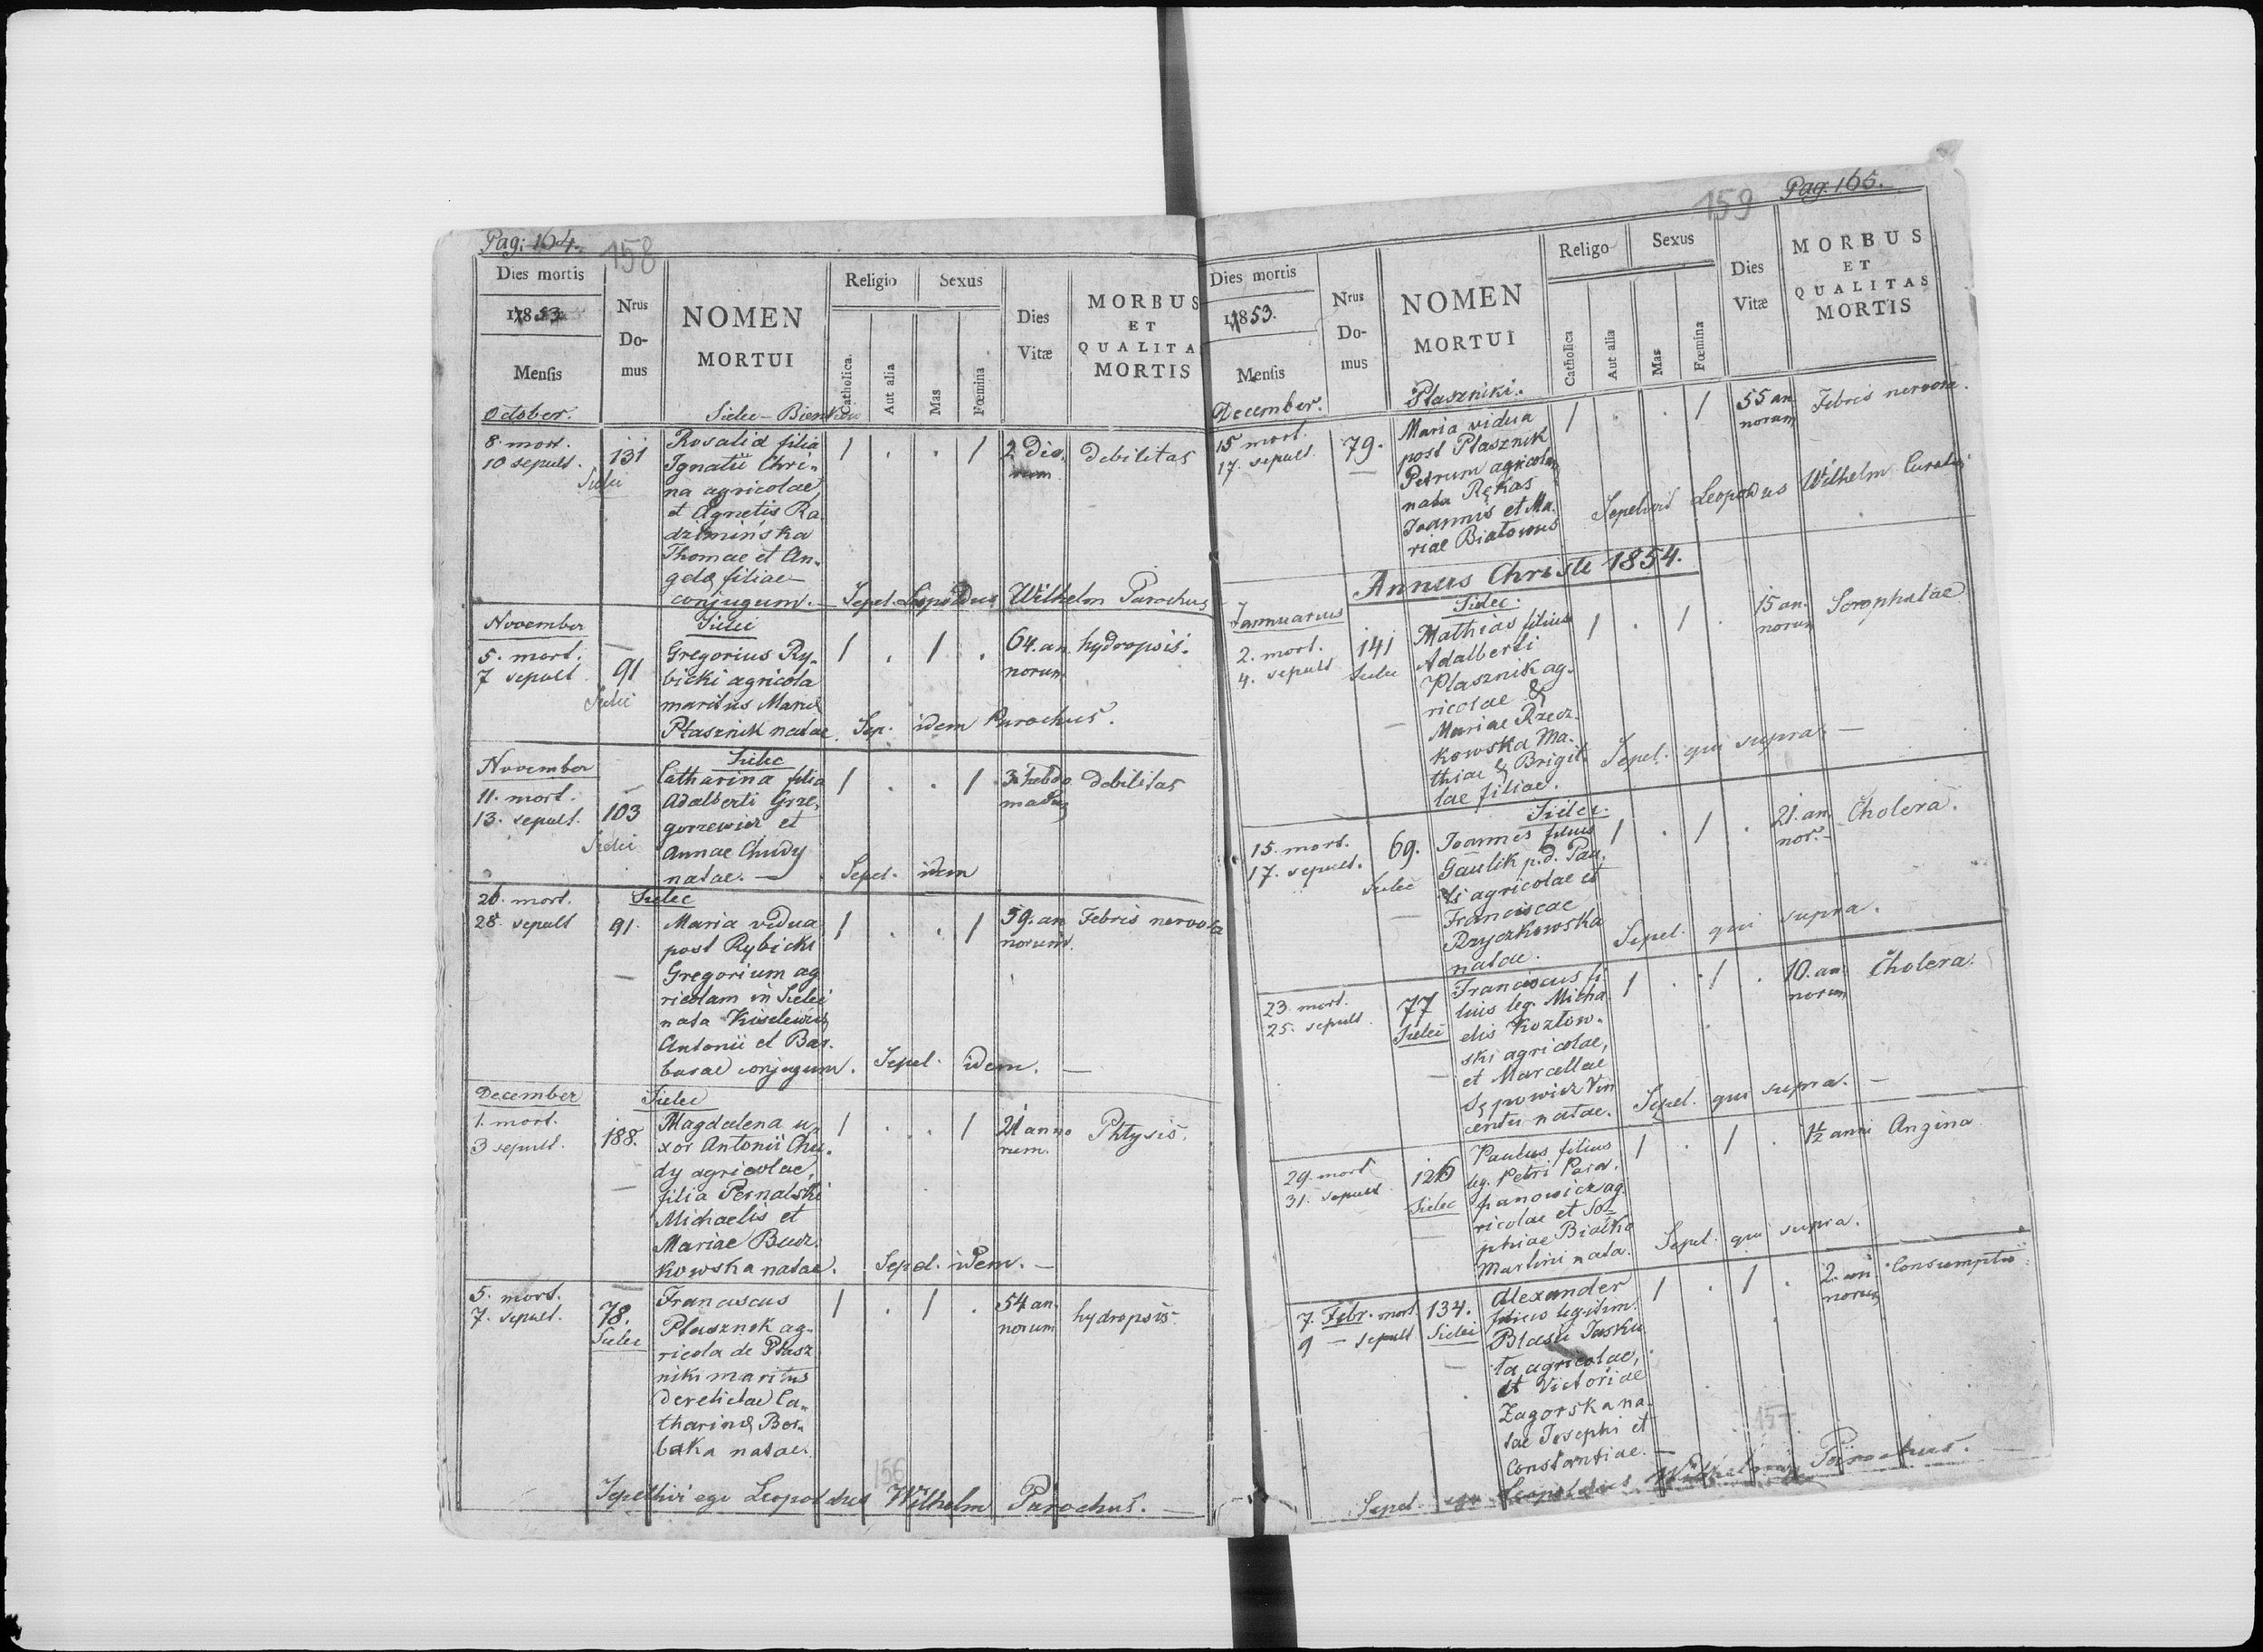 Pag: 164.
158
Dies mortis
1853
Mensis
Nrus
Do-
mus
NOMEN
MORTUI
Religio
Catholica.
Aut alia
Sexus
Mas
Fœmina
Dies
Vitæ
MORBUS
ET
QUALITA
MORTIS
October.
Sielec - Bienków
8. mort.
10 sepult.
131
Sielec
Rosalia filia
Ignatii Chri-
na agricolae,
et Agnetis Ra
dzimińska
Thomae et An-
gela filiae
conjugum.
1 . . 1
2 die
rum
debilitas
Sepel. Leopoldus Wilhelm Parochus
November
Sielec
5. mort.
7 sepult
91
Sielec
Gregorius Ry-
bicki agricola
maritus Mariae
Ptasznik natae.
1 . 1 .
64. an
norum
hydropsis.
Sep. idem Parochus.
November
Sielec
11. mort.
13. sepult.
103
Sielec
Catharina filia
Adalberti Grze-
gorzewicz et
Annae Chudy
natae.
1 . . 1
3 hebdo
madas
debilitas
Sepel. idem
26. mort.
28. sepult
Sielec
91.
Maria vidua
post Rybicki
Gregorium ag
ricolam in Sielec
nata Kisielewicz
Antonii et Bar-
barae conjugum.
1 . . 1
59. an
norum.
Febris nervosa
Sepel. idem.
December
Sielec
1. mort.
3 sepult.
188.
Magdalena u-
xor Antonii Chu-
dy agricolae,
filia Pernalski
Michaelis et
Mariae Bucz-
kowska natae.
1 . . 1
21 anno
rum.
Phtysis.
Sepel. idem.
5. mort.
7. sepult.
78.
Sielec
Franciscus
Ptasznik ag-
ricola de Ptasz
niki maritus
derelictae Ca-
tharinae Bor-
baka natae.
1 . 1 .
54 an-
norum
hydropsis.
156
Sepelivi ego Leopoldus Wilhelm Parochus.
159
Pag. 165.
Dies mortis
1853.
Mensis
Nrus
Do-
mus
NOMEN
MORTUI
Religo
Catholica
Aut alia
Sexus
Mas
Fœmina
Dies
Vitæ
MORBUS
ET
QUALITAS
MORTIS
December.
Ptaszniki.
15 mort.
17. sepult.
79.
Maria vidua
post Ptasznik
Petrum agricolam
nata Rękas
Joannis et Ma-
riae Białowus
1 . . 1
55 an
norum
Febris nervosa.
Sepelivit Leopoldus Wilhelm Curatus
Annus Christi 1854.
Januarius
Sielec.
2. mort.
4. sepult
141
Sielec
Mathias filius
Adalberti
Ptasznik ag-
ricolae &
Mariae Rzecz-
kowska Ma-
thiae & Brigit-
tae filiae.
1 . 1 .
15 an-
norum
Scrophulae
Sepel. qui supra.
Sielec.
15. mort.
17. sepult.
69.
Sielec
Joannes filius
Gaulik p. d. Pau-
li agricolae et
Franciscae
Rzyczkowska
natae.
1 . 1 .
21. an
nor.
Cholera.
Sepel. qui supra.
23. mort.
25. sepult.
77
Sielec
Franciscus fi-
lius leg. Micha
elis Kozłow-
ski agricolae,
et Marcellae
Sępowicz Vin
centii natae.
1 . 1 .
10. an
norum
Cholera.
Sepel. qui supra.
29. mort
31. sepult.
126
Sielec
Paulus filius
leg. Petri Para-
phanowicz ag
ricolae et So-
phiae Białko
Martini nata.
1 . 1 .
1½ anni
Angina
Sepel. qui supra.
7. Febr. mort.
9 - sepult
134.
Sielec
Alexander
filius legitim.
Blasii Jasku
ła agricolae,
et Victoriae
Zagorska na-
tae Josephi et
Constantiae.
1 . 1 .
2. an
norum
Consumptio
157
Sepel. ego Leopoldus Wilhelm Parochus.